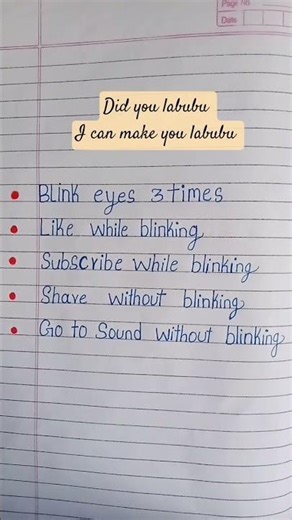 Page No.
Date
Did you labubu
I can make you labubu
• Blink eyes 3 times
• Like while blinking
• Subscribe while blinking
• Share without blinking
• Go to Sound without blinking